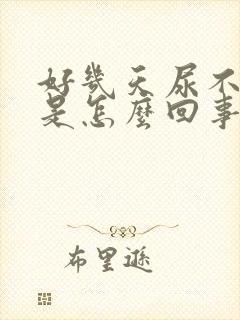 好幾天尿不
是怎麼回事
布里遜